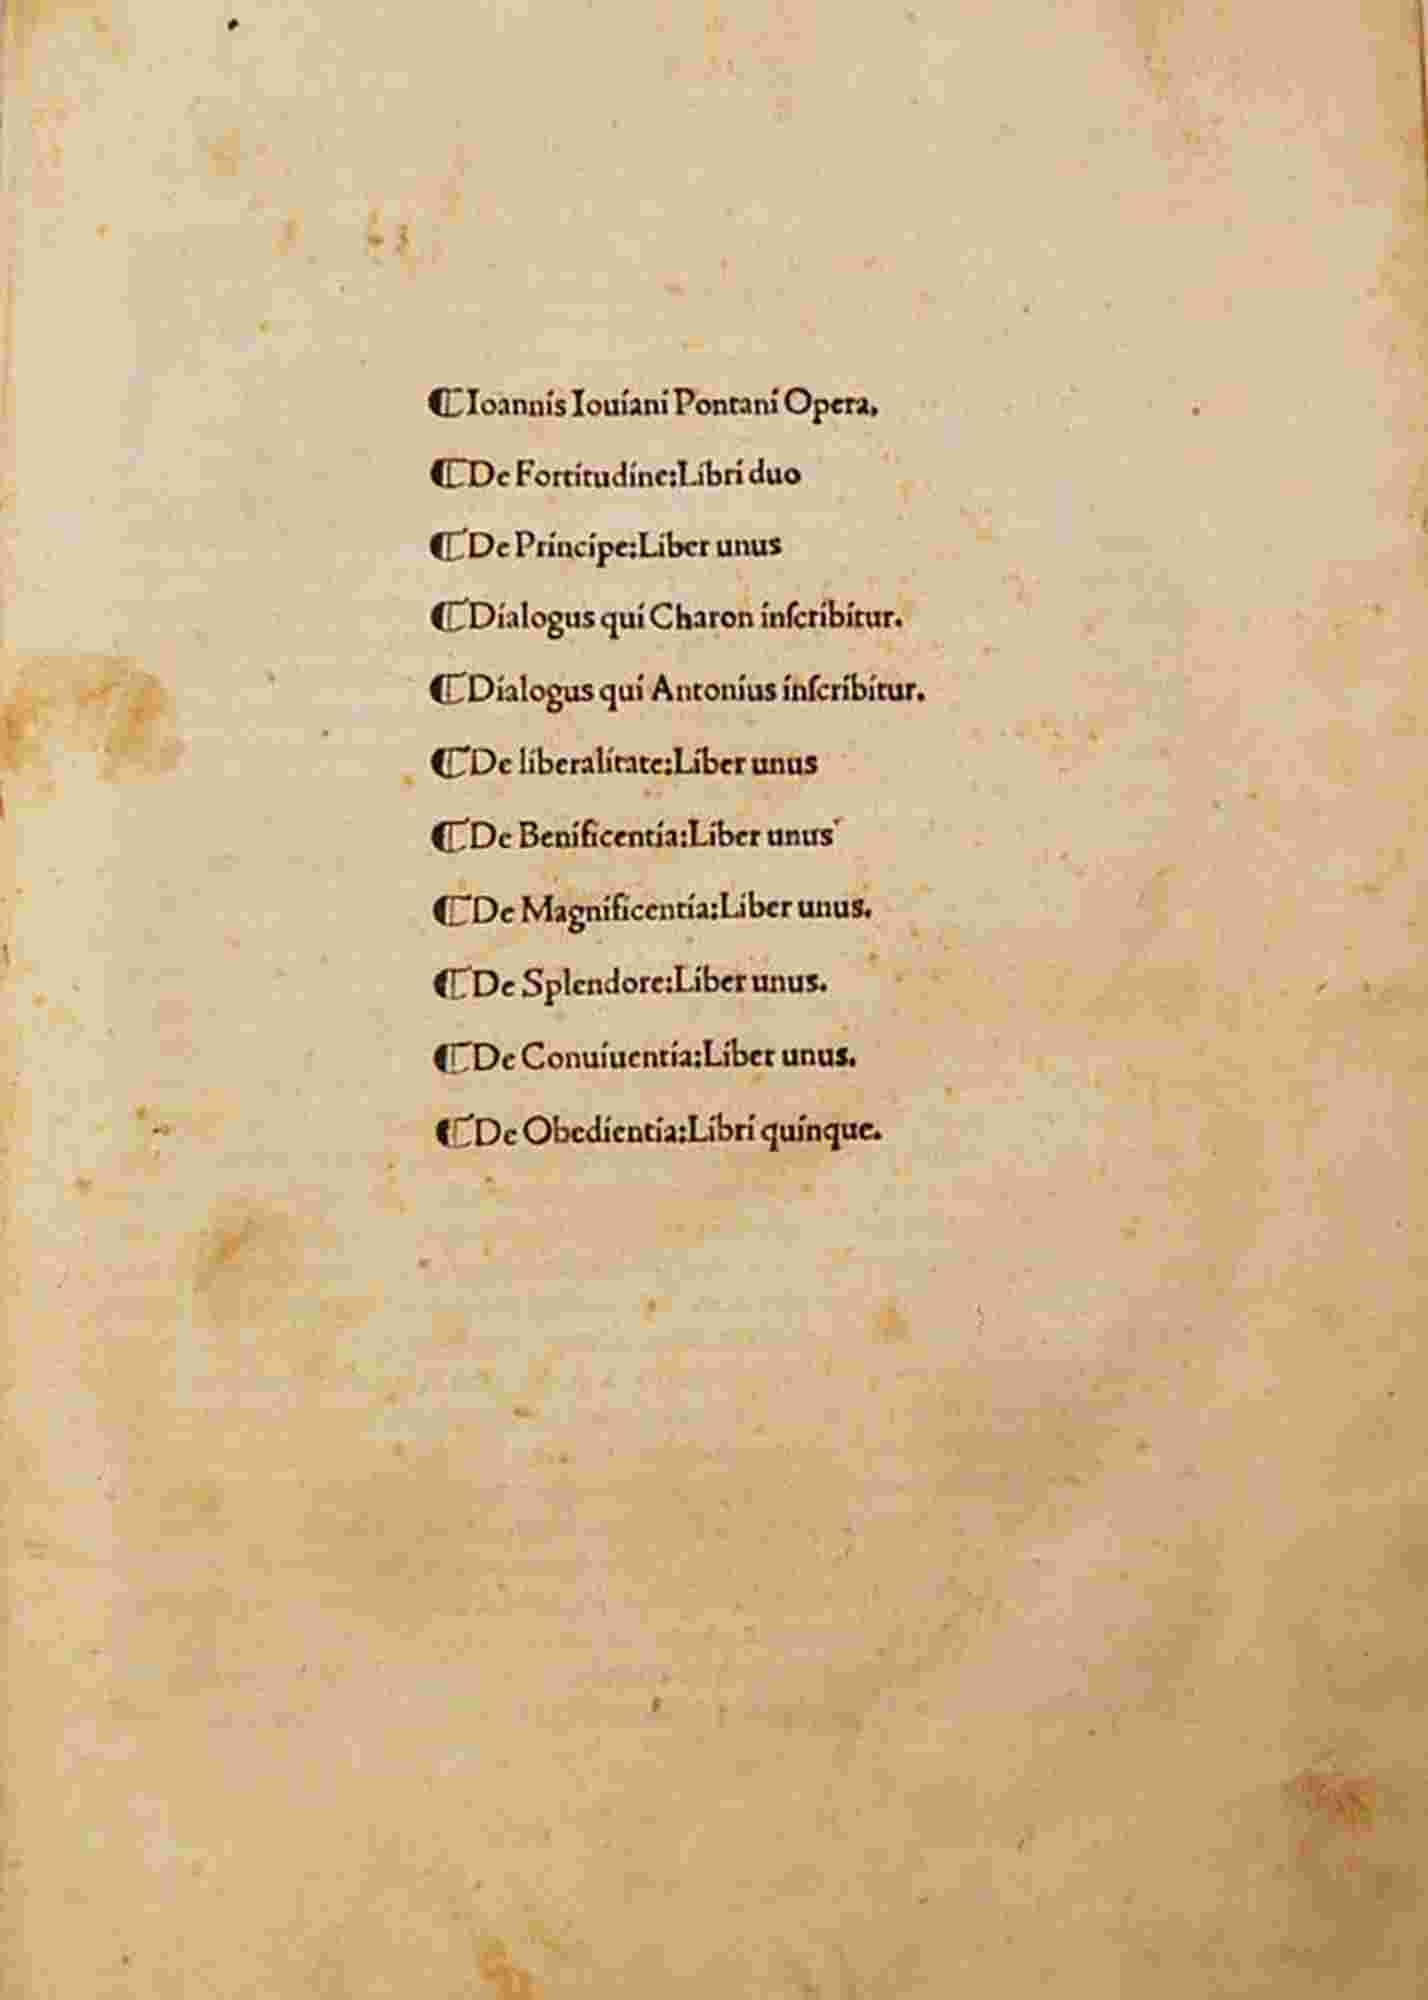 ⸿Ioannis Iouiani Pontani Opera.
⸿De Fortitudine:Libri duo
⸿De Principe:Liber unus
⸿Dialogus qui Charon inſcribitur.
⸿Dialogus qui Antonius inſcribitur.
⸿De liberalitate:Liber unus
⸿De Benificentia:Liber unus
⸿De Magnificentia:Liber unus.
⸿De Splendore:Liber unus.
⸿De Conuiuentia:Liber unus.
⸿De Obedientia:Libri quinque.